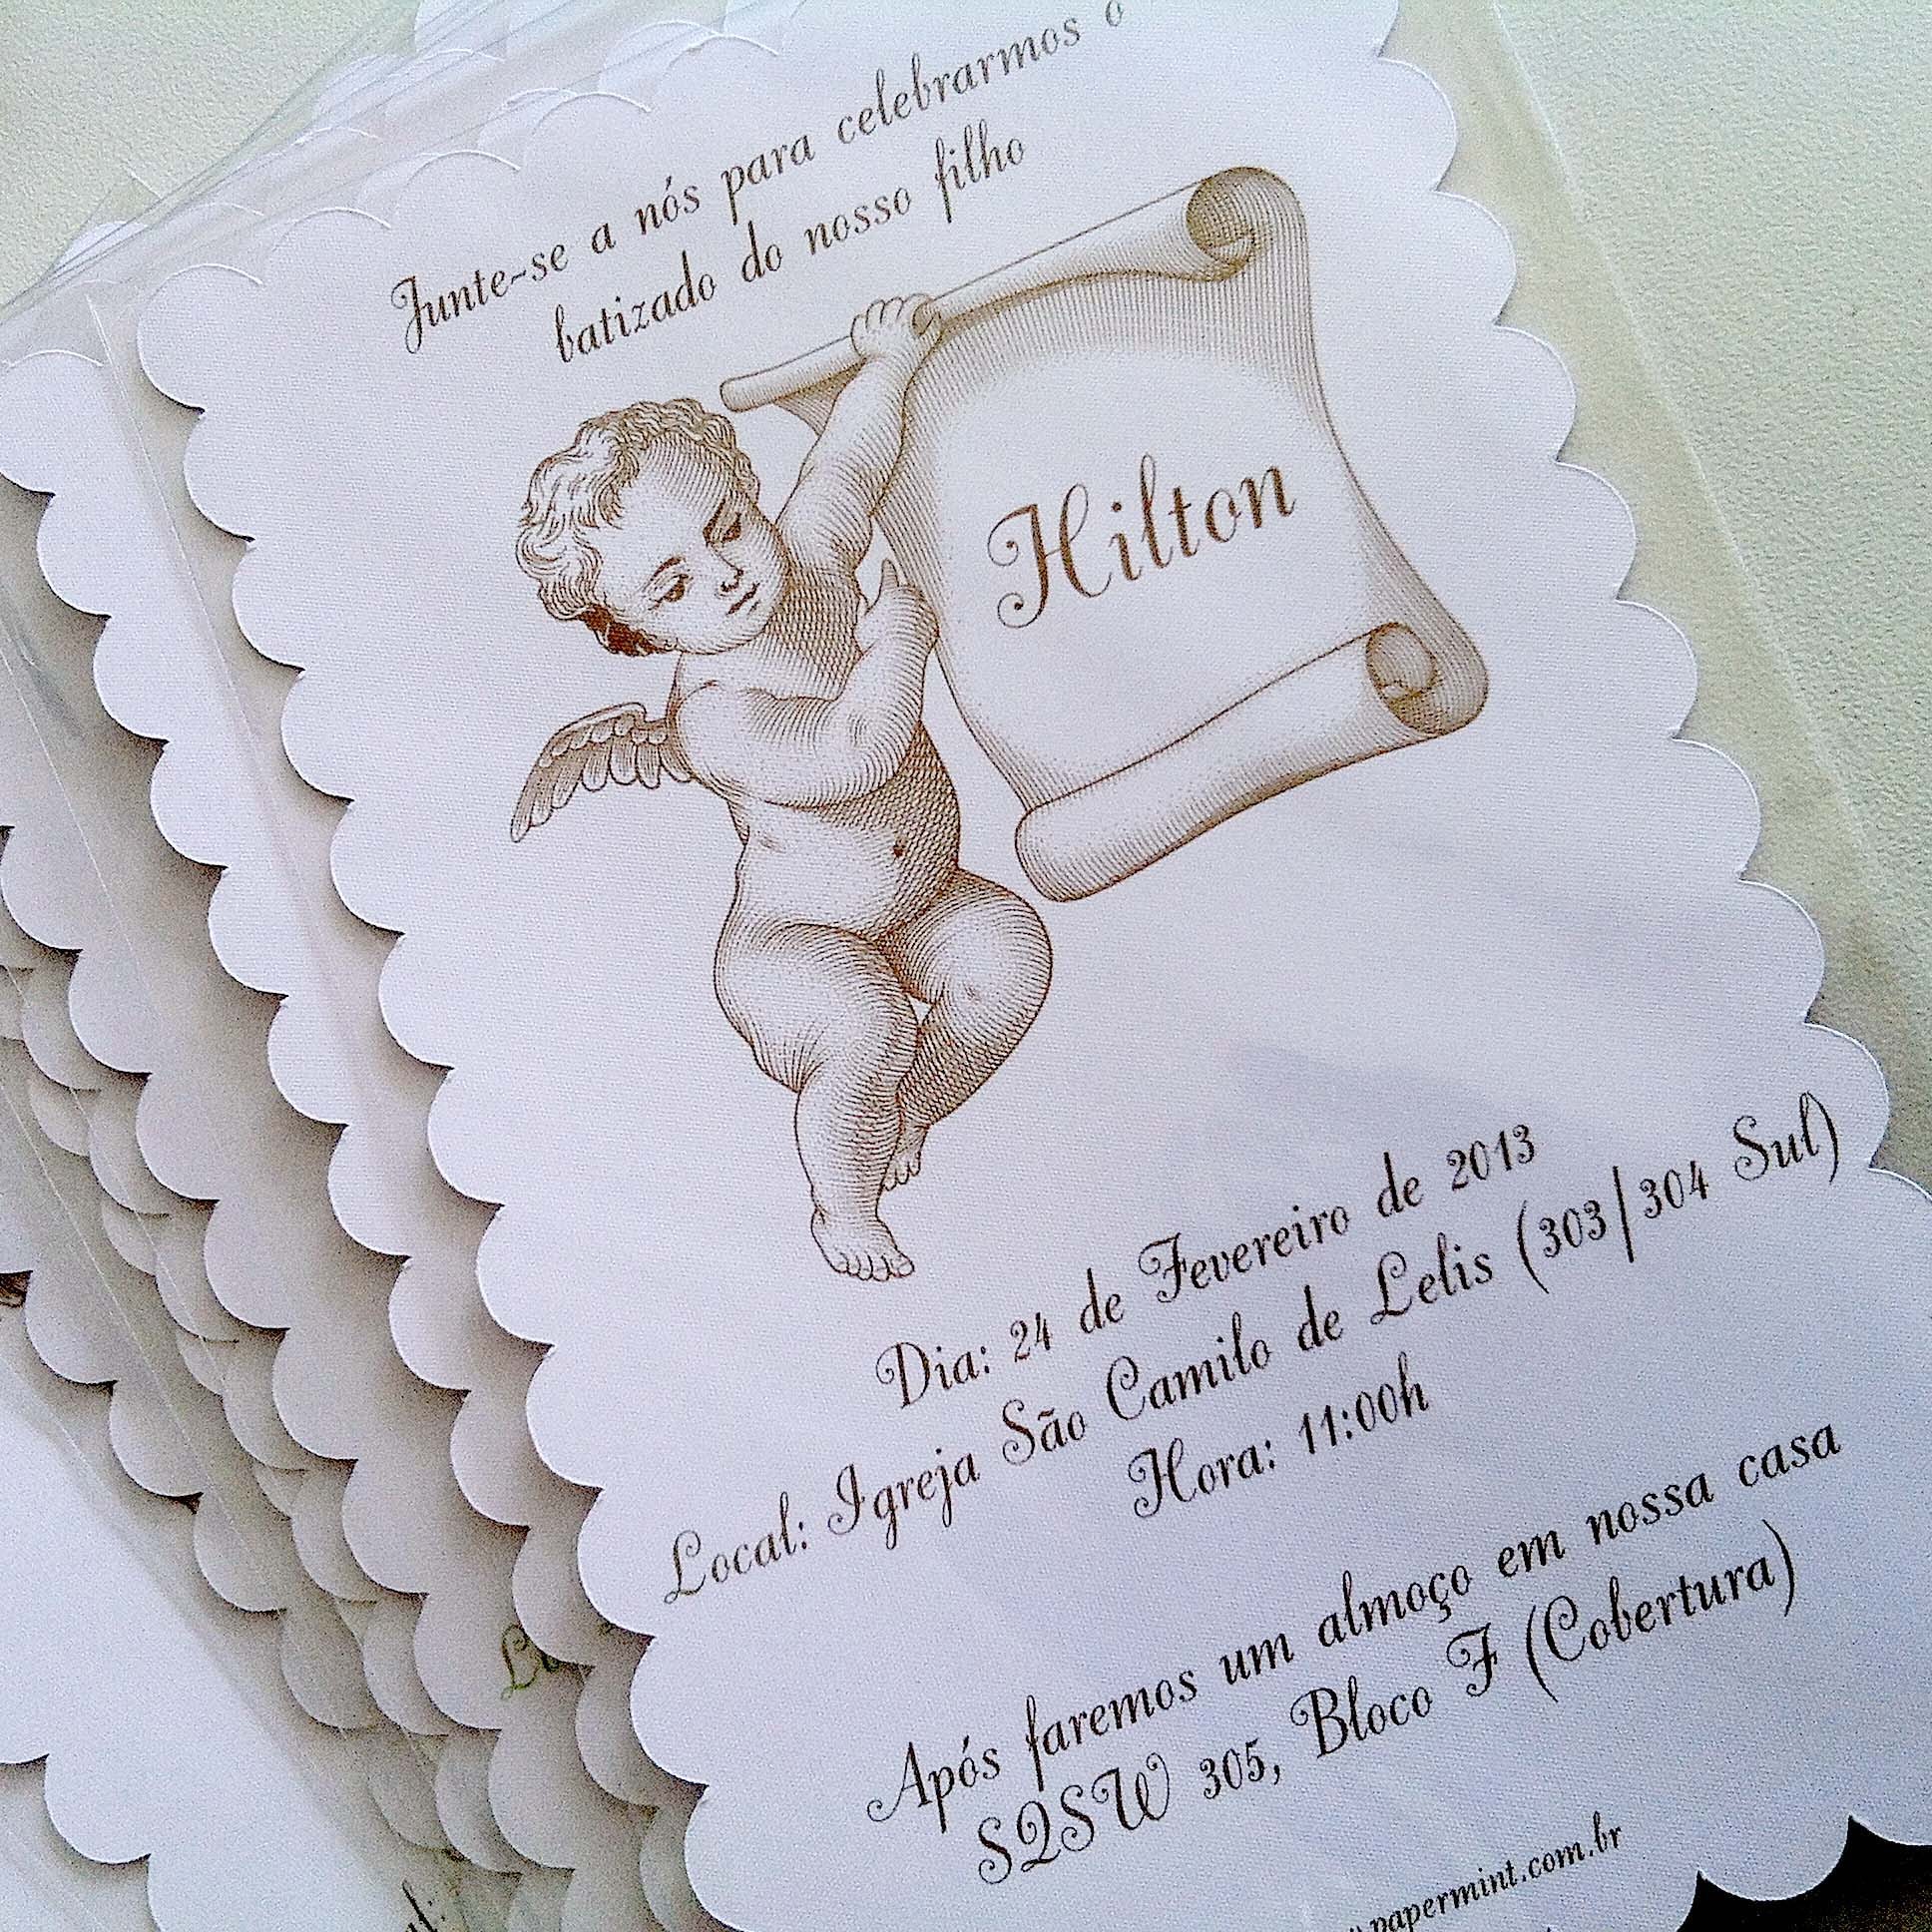 Junte-se a nós para celebrarmos o
batizado do nosso filho
Hilton
Dia: 24 de Fevereiro de 2013
Local: Igreja São Camilo de Lelis (303/304 Sul)
Hora: 11:00h
Após faremos um almoço em nossa casa
SQSW 305, Bloco F (Cobertura)
papermint.com.br